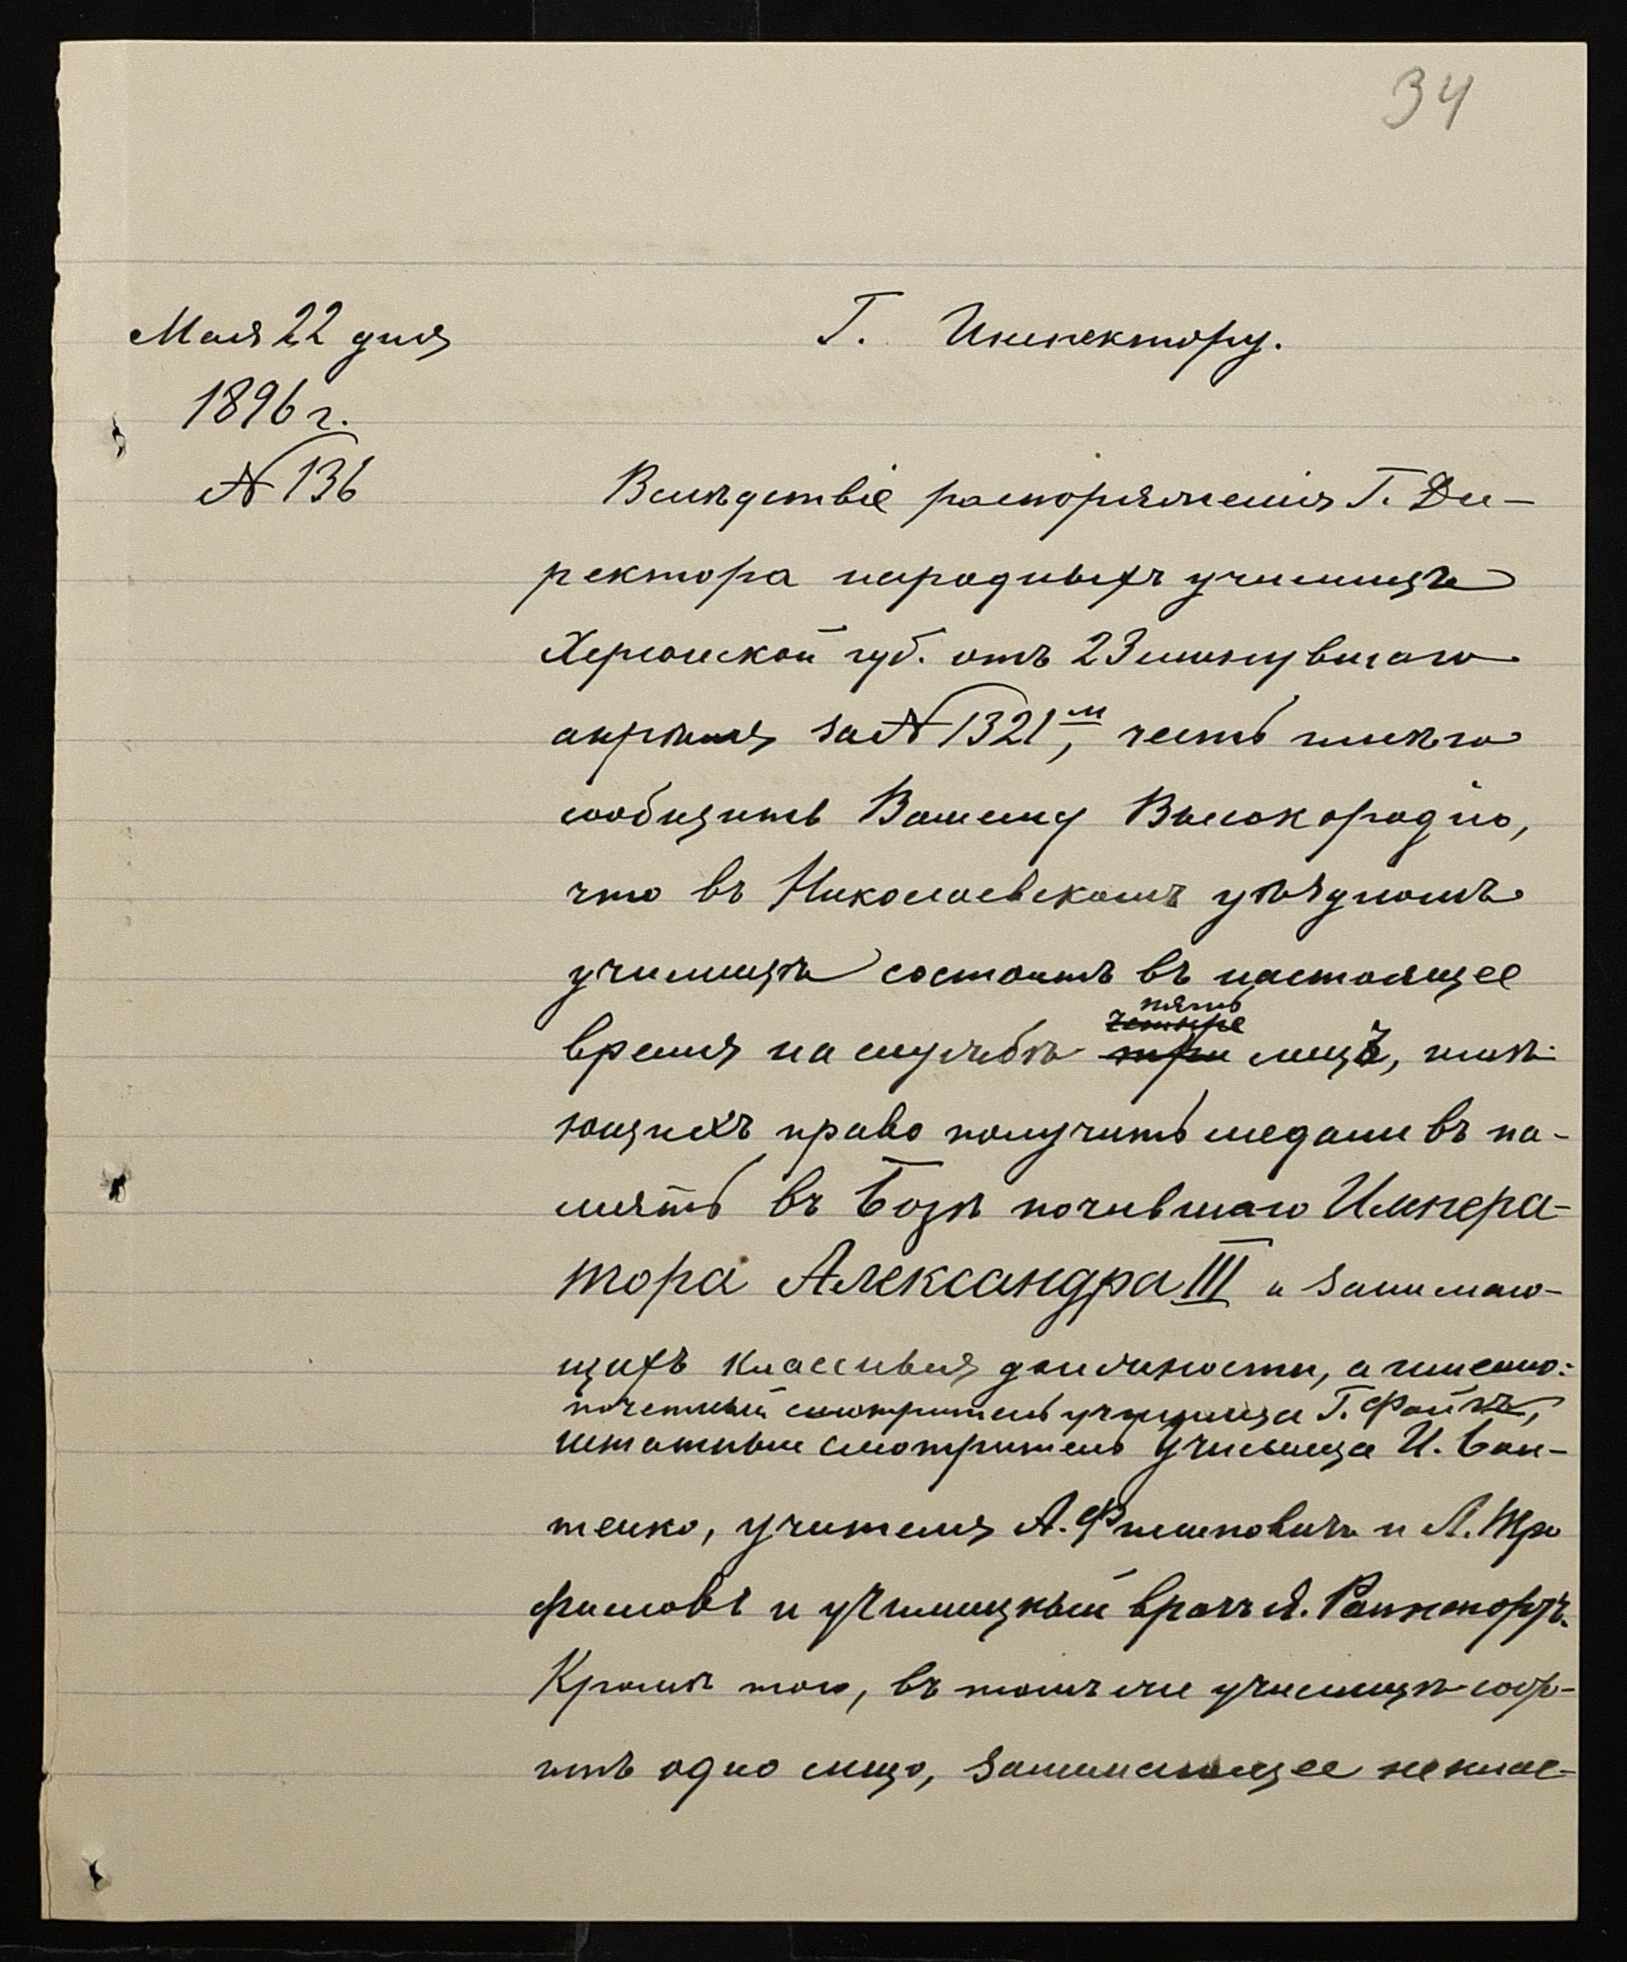 34
Мая 22 дня
1896 г.
№ 136
Г. Инспектору.
Вслѣдствіе распоряженія Г. Ди-
ректора народныхъ училищъ
Херсонской губ. отъ 23 минувшаго
апрѣля за № 1321м, честь имѣю
сообщить Вашему Высокородію,
что въ Николаевскомъ уѣздномъ
училищѣ состоитъ въ настоящее
пять
четыре
время на службѣ три лицъ, имѣ-
ющихъ право получить медали въ па-
мять въ Бозѣ почившаго Импера-
тора Александра III и занимаю-
щихъ классныя должности, а именно:
почетный смотритель училища Г.
штатный смотритель училища И. Бон-
тенко, учителя А. Филиповичъ и Л. Тро
фимовъ и училищный врачъ Я. Раппопортъ.
Кромѣ того, въ томъ же училищѣ состо-
итъ одно лицо, занимающее неклас-